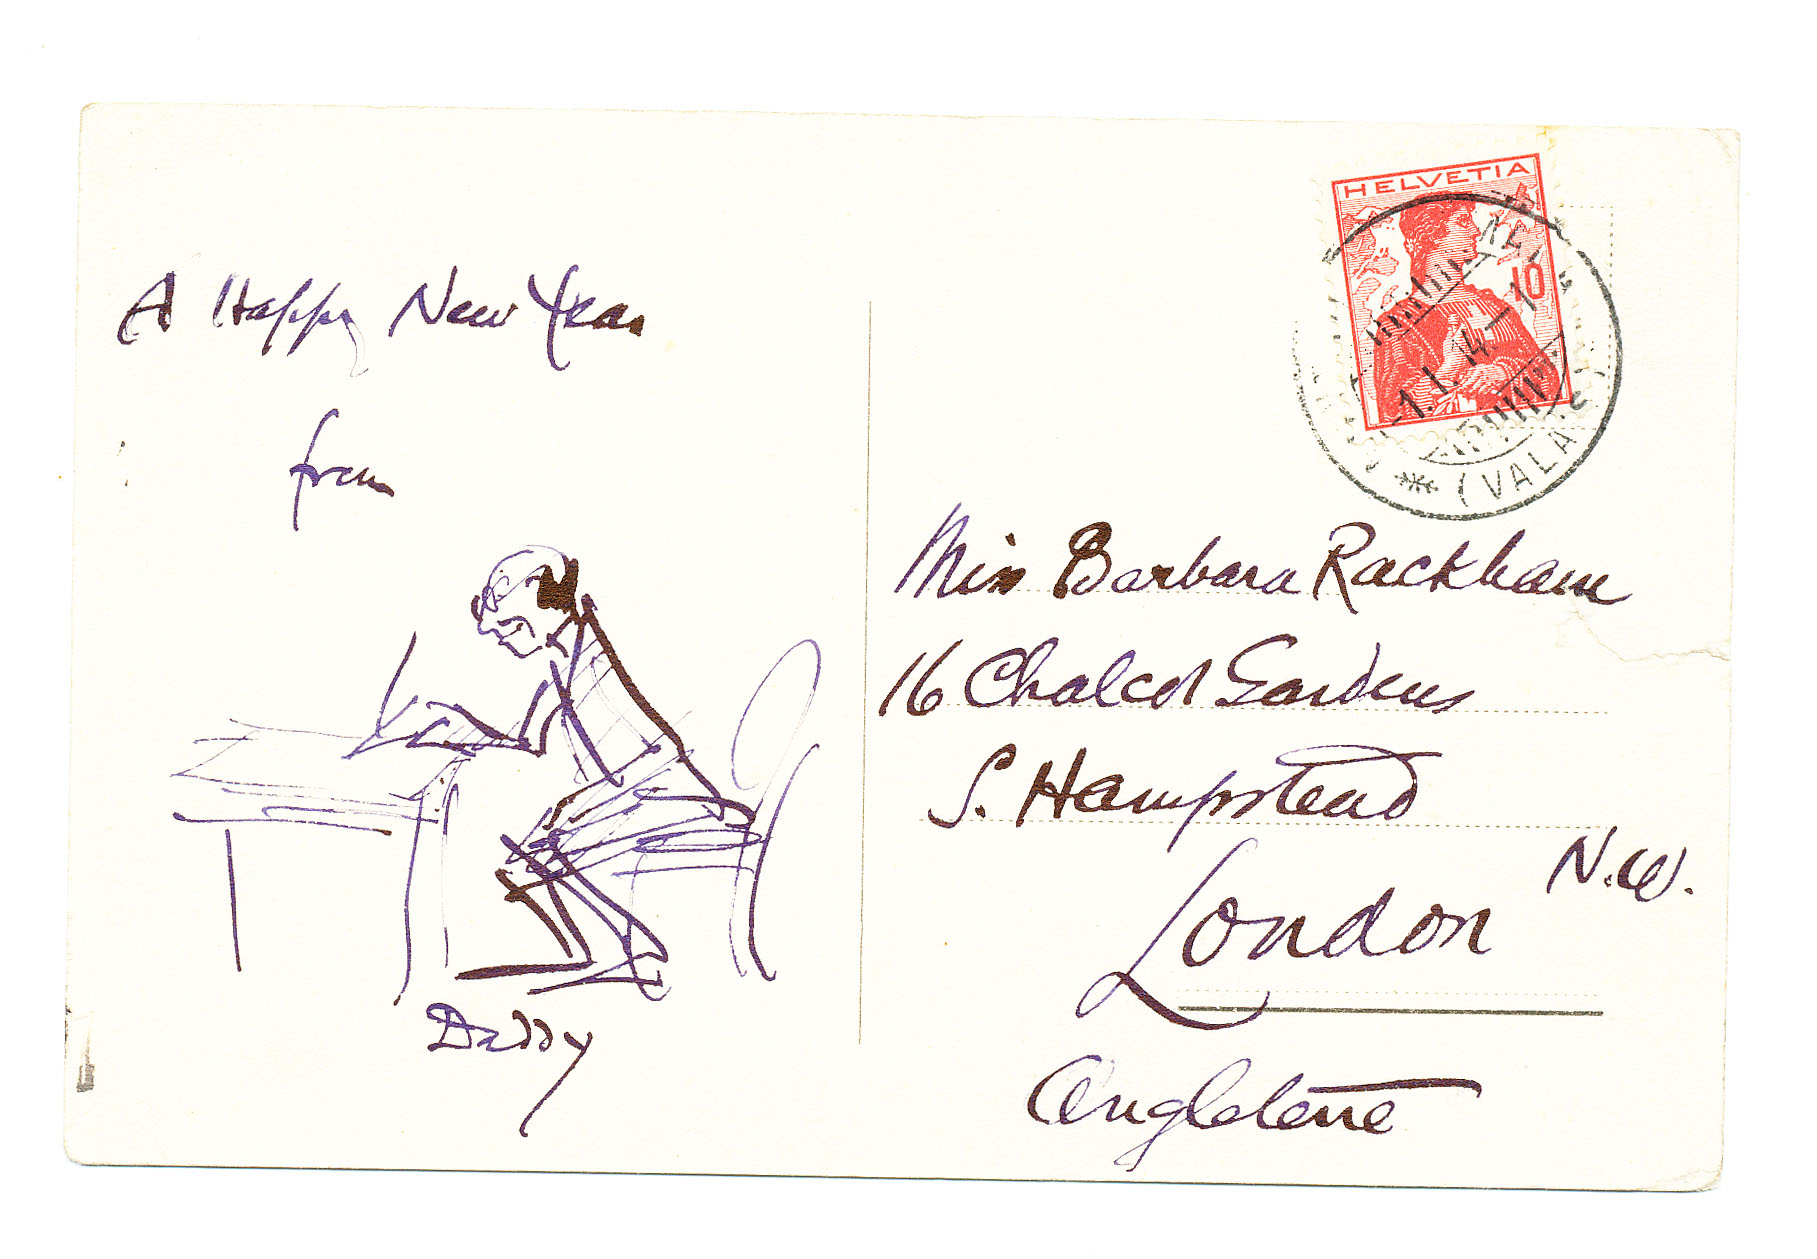 A Happy New Year
from
Daddy
HELVETIA
10
-1.I.14-10
(VALAIS)
Miss Barbara Rackham
16 Chalcot Gardens
S. Hampstead
N.W.
London
Angleterre